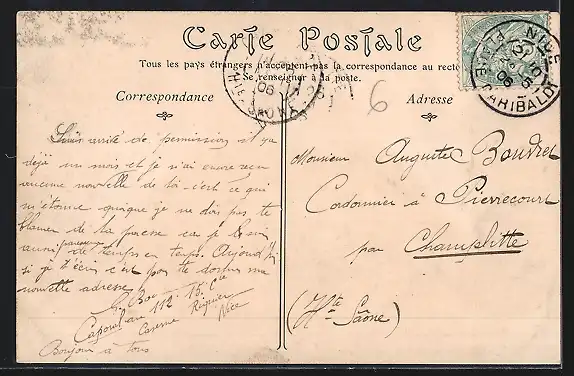 Carte Postale
Tous les pays étrangers n'acceptent pas la correspondance au recto
Se renseigner à la poste.
Correspondance
Adresse
NICE
GARIBALDI
06
6
Suis arrivé de permission il y a
déjà un mois et je n'ai encore reçu
aucune nouvelle de toi c'est ce qui
m'étonne quoique je ne dois pas te
blamer de ta paresse car je le suis
aussi paresseux de temps en temps. Aujourd'hui
si je t'écris c'est pour te donner ma
nouvelle adresse
Caporal au 112 15 Cie
Caserne Riquier
Nice
Bonjour à tous
Monsieur Auguste Boudret
Cordonnier à Pierrecourt
par Champlitte
(Hte Saône)